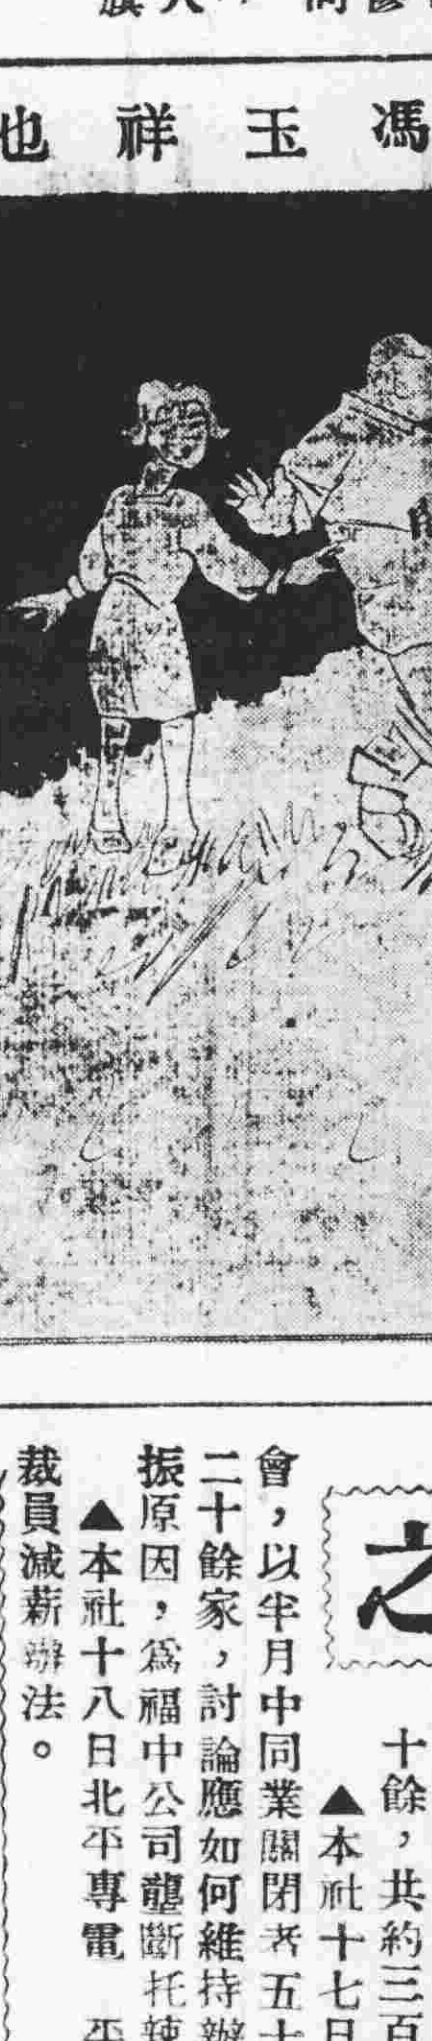 馮玉祥也
之
十餘，共約三百
▲本社十七日
會，以半月中同業關閉者五十
二十餘家，討論應如何維持辦
振原因，為福中公司壟斷托辣
▲本社十八日北平專電　平
裁員減薪辦法。